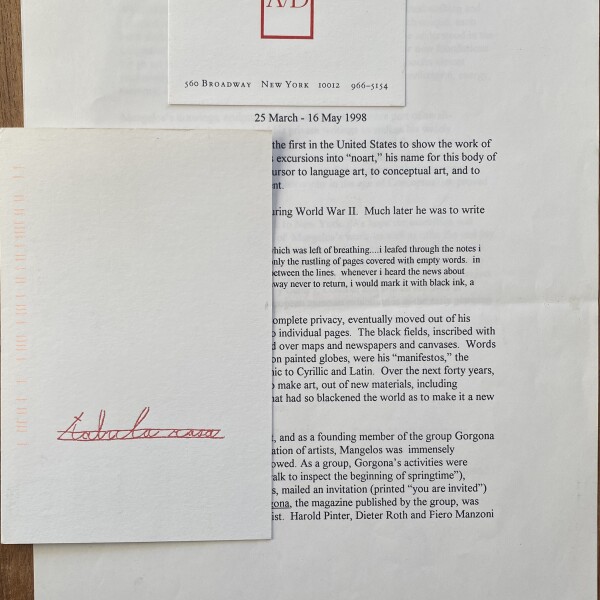 A/D
560 Broadway New York 10012 966-5154
25 March - 16 May 1998
the first in the United States to show the work of
excursions into “noart,” his name for this body of
cursor to language art, to conceptual art, and to
nt.
uring World War II. Much later he was to write
which was left of breathing....i leafed through the notes i
only the rustling of pages covered with empty words. in
between the lines. whenever i heard the news about
way never to return, i would mark it with black ink, a
omplete privacy, eventually moved out of his
individual pages. The black fields, inscribed with
d over maps and newspapers and canvases. Words
on painted globes, were his “manifestos,” the
ic to Cyrillic and Latin. Over the next forty years,
make art, out of new materials, including
hat had so blackened the world as to make it a new
tabula rasa
, and as a founding member of the group Gorgona
ation of artists, Mangelos was immensely
owed. As a group, Gorgona’s activities were
alk to inspect the beginning of springtime”),
s, mailed an invitation (printed “you are invited”)
gona, the magazine published by the group, was
ist. Harold Pinter, Dieter Roth and Fiero Manzoni